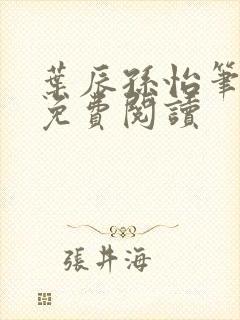 葉辰孫怡筆
免費閱讀
張井海